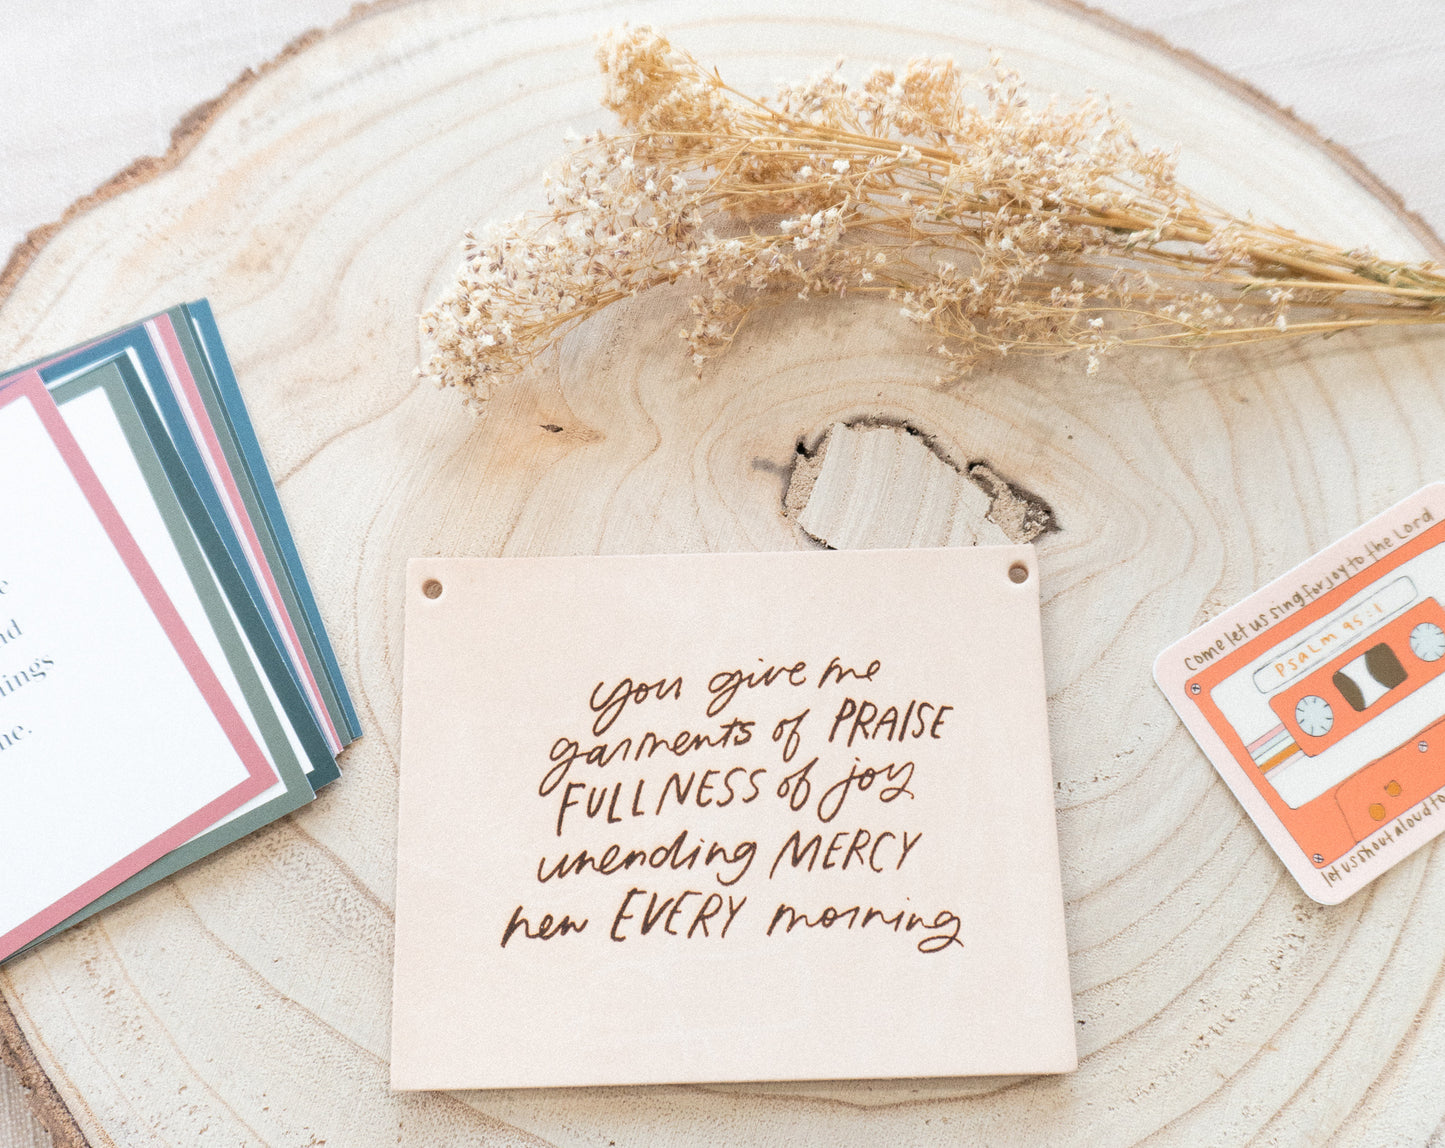 you give me
garments of PRAISE
FULLNESS of joy
unending MERCY
new EVERY morning
Come let us sing for joy to the Lord
Psalm 95:1
let us shout aloud to